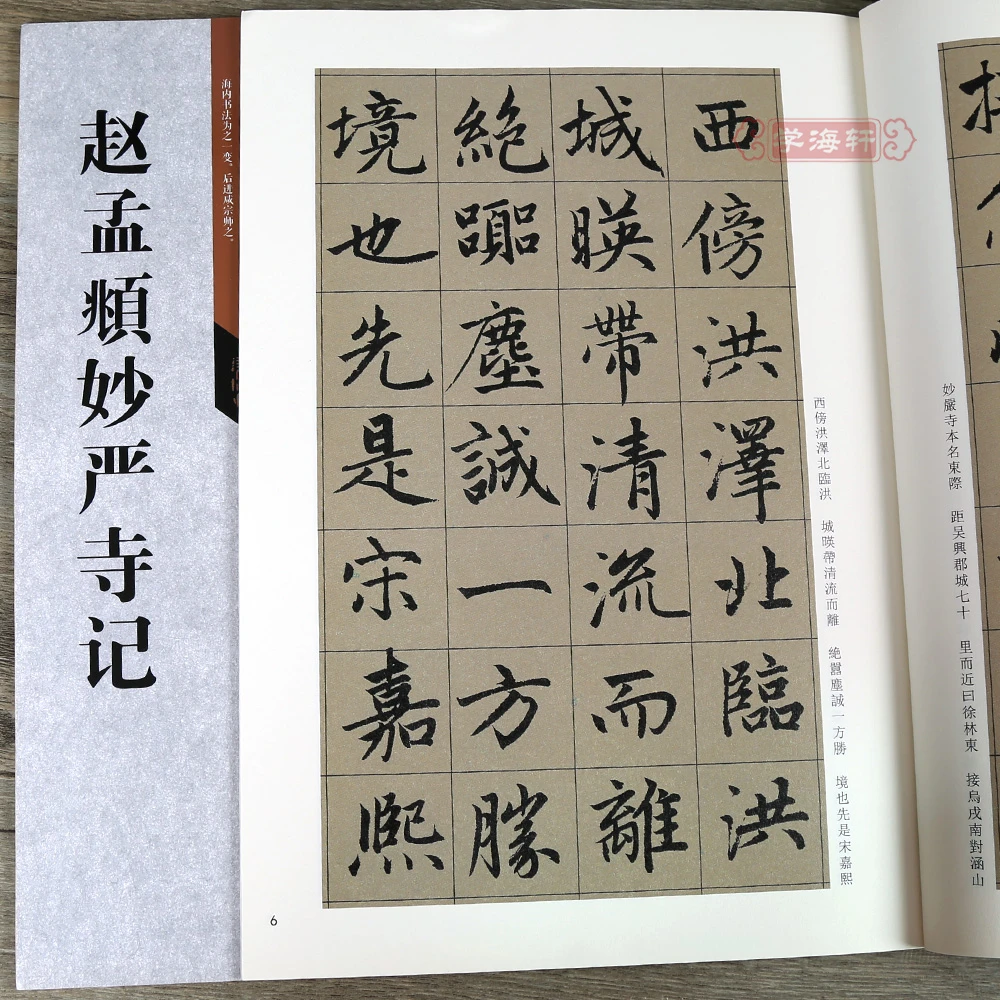 赵孟頫妙严寺记
海内书法为之一变。后进咸宗师之。
学海轩
西傍洪澤北臨洪
城暎帶清流而離
絶嚻塵誠一方勝
境也先是宋嘉熙
西傍洪澤北臨洪 城暎帶清流而離 絶嚻塵誠一方勝 境也先是宋嘉熙
妙嚴寺本名東際 距吴興郡城七十 里而近曰徐林東 接烏戍南對涵山
6